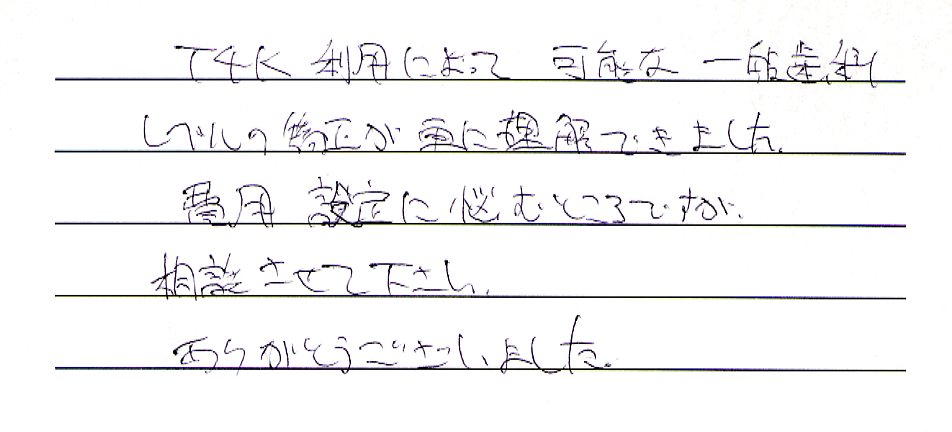 T4K 利用によって 可能な 一般歯科
レベルの矯正が更に理解できました。
費用設定に悩むところですが、
相談させて下さい。
ありがとうございました。